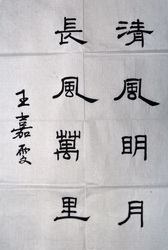 清風明月
長風萬里
王嘉雯